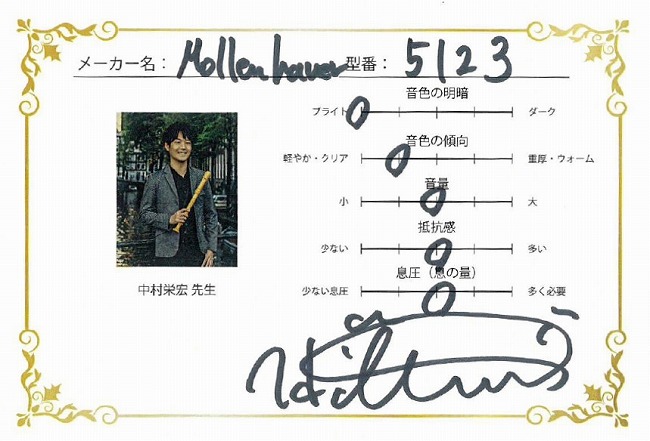 メーカー名： Mollenhauer 型番： 5123
音色の明暗
ブライト ダーク
音色の傾向
軽やか・クリア 重厚・ウォーム
音量
小 大
抵抗感
少ない 多い
息圧（息の量）
少ない息圧 多く必要
中村栄宏 先生